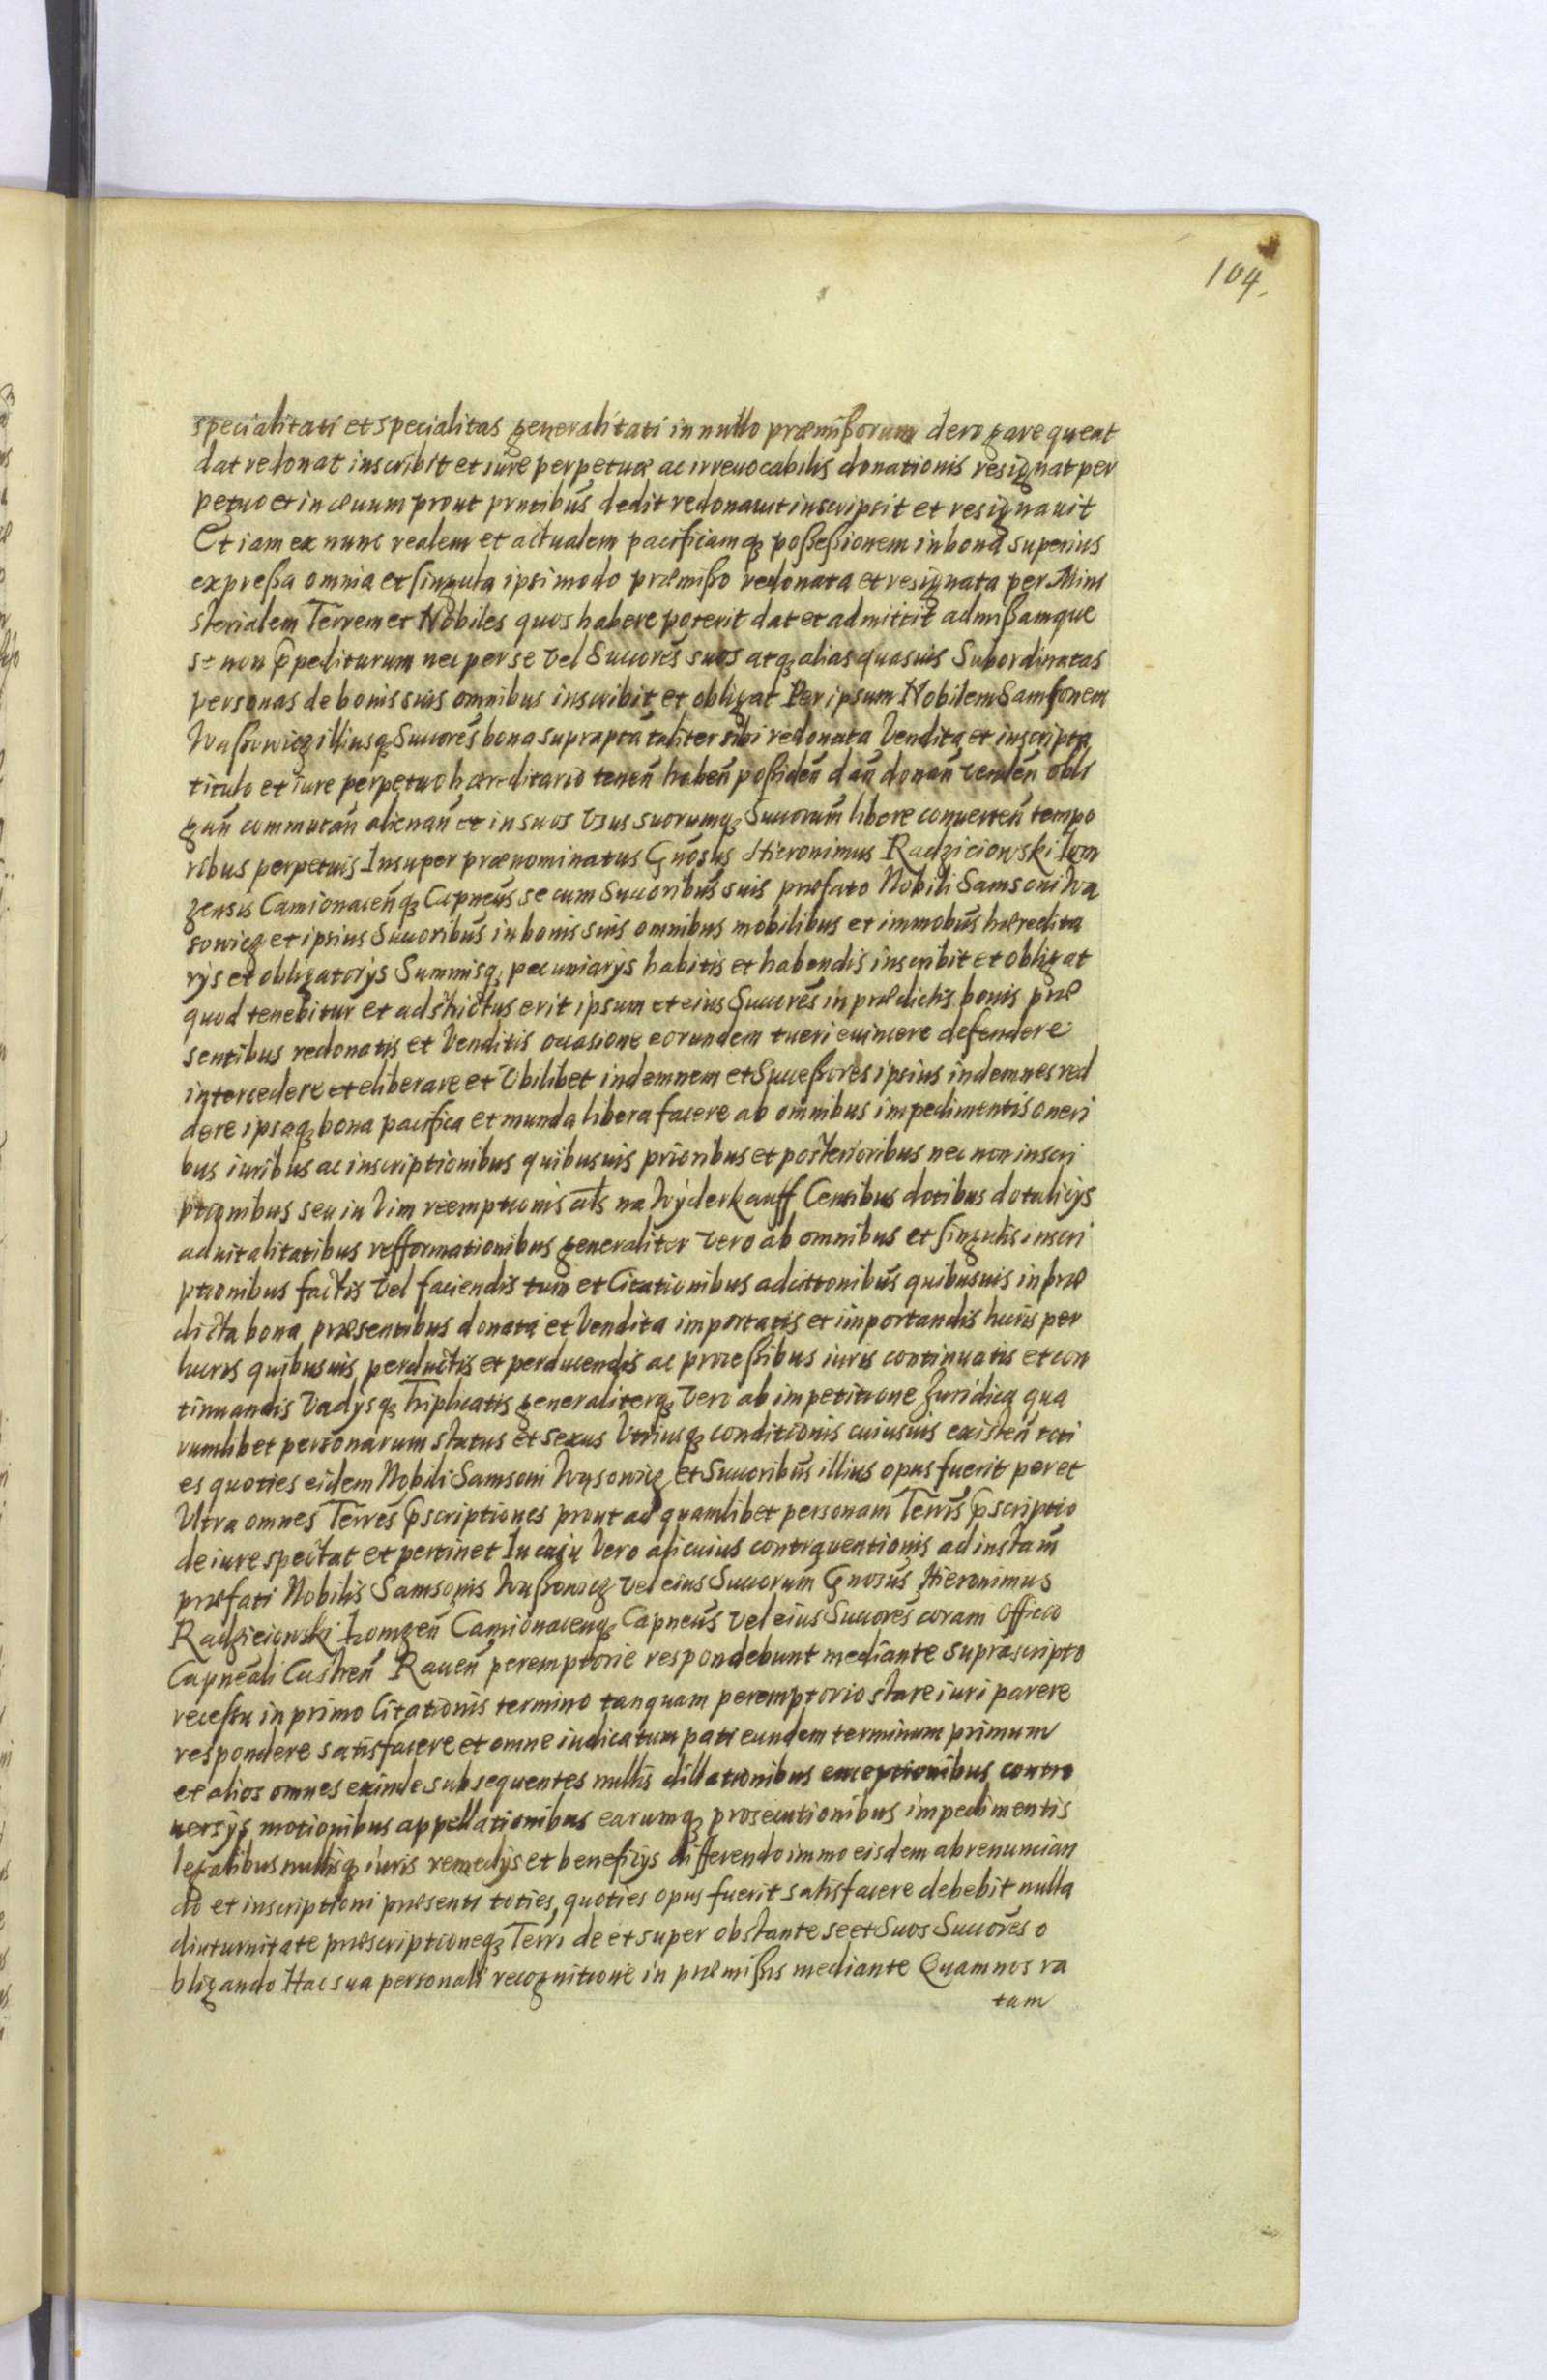 104.
specialitati et specialitas generalitati in nullo præmißorum derogare queat
dat redonat inscribit et iure perpetuæ ac irreuocabilis donationis resignat per
petuo et in æuum prout pntibūs dedit redonauit inscripsit et resignauit
Et iam ex nunc realem et actualem pacificamq; poßeßionem in bona superius
expreßa omnia et singula ipsi modo præmißo redonata et resignata per Mini
sterialem Terrem et Nobiles quos habere poterit dat et admittit admißamque
se non ꝑpediturum nec per se vel Succorēs suos atq; alias quasuis Subordinatas
personas de bonis suis omnibus inscribit et obligat Per ipsum Nobilem Samsonem
Waßowicz illiusq; Succorēs bona suprapta taliter sibi redonata Vendita et inscripta
titulo et iure perpetuo hæreditario teneñ habeñ poßideñ dañ donañ vendeñ obli
gañ commutañ alienañ et in suos vsus suorumq; Succorum̄ libere conuerteñ tempo
ribus perpetuis Insuper prænominatus Gnosus Hieronimus Radzieiowski Lom
zensis Camionaceñq; Capneūs se cum Succoribūs suis præfato Nobili Samsoni Wa
sowicz et ipsius Succoribūs in bonis suis omnibus mobilibus et immobūs hæredita
rys et obligatorys Summisq; pecuniarys habitis et habendis inscribit et obligat
quod tenebitur et adstrictus erit ipsum et eius Succorēs in prædictis bonis præ
sentibus redonatis et Venditis occasione eorundem tueri euincere defendere
intercedere et eliberare et Vbilibet indemnem et Succeßores ipsius indemnes red
dere ipsaq; bona pacifica et munda libera facere ab omnibus impedimentis oneri
bus iuribus ac inscriptionibus quibusuis prioribus et posterioribus nec non inscri
ptionibus seu in Vim reemptionis als na Wyderkauff Censibus dotibus dotalicys
aduitalitatibus refformationibus generaliter vero ab omnibus et singulis inscri
ptionibus factis vel faciendis tum et Citationibus adcitionibūs quibusuis in præ
dicta bona præsentibus donata et Vendita importatis et importandis lucris per
lucris quibusuis perductis et perducendis ac proceßibus iuris continuatis et con
tinuandis Vadysq; Triplicatis generaliterq; vero ab impetitione Juridica qua
rumlibet personarum status et sexus Vtriusq; conditionis cuiusuis existeñ toti
es quoties eidem Nobili Samsoni Wasowicz et Succoribūs illius opus fuerit per et
Vltra omnes Terrēs ꝑscriptiones prout ad quamlibet personam Terrīs ꝑscriptio
de iure spectat et pertinet In casu Vero alicuius contrauentionis ad instam̄
præfati Nobilis Samsonis Waßowicz vel eius Succorum̄ Gnosūs Hieronimus
Radzieiowski Lomzeñ Camionacenq; Capneūs vel eius Succorēs coram Officio
Capneali Castreñ Raueñ peremptorie respondebunt mediante suprascripto
receßu in primo Citationis termino tanquam peremptorio stare iuri parere
respondere satisfacere et omne iudicatum pati eundem terminum primum
et alios omnes exinde subsequentes nullis dillationibus exceptionibus contro
uersys motionibus appellationibus earumq; prosecutionibus impedimentis
legalibus nullisq; iuris remedys et beneficys differendo immo eisdem abrenuncian
do et inscriptioni præsenti toties, quoties opus fuerit satisfacere debebit nulla
diuturnitate præscriptioneq; Terri de et super obstante se et Suos Succorēs o
bligando Hac sua personali recognitione in præmißis mediante Quam nos ra
tam